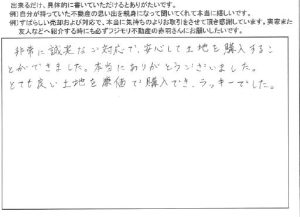 出来るだけ、具体的に書いていただけるとありがたいです。
例）自分が持っていた不動産の思い出を親身になって聞いてくれて本当に嬉しいです。
例）すばらしい笑顔および対応で、本当に気持ちのよいお取引をさせて頂き感謝しています。実家また
友人などへ紹介する時にも必ずフジモリ不動産の赤羽さんにお願いしたいです。
非常に誠実なご対応で、安心して土地を購入するこ
とができました。本当にありがとうございました。
とても良い土地を廉価で購入でき、ラッキーでした。